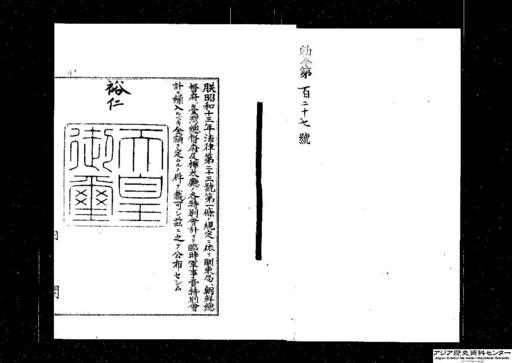 勅令第百二十七號
朕昭和十三年法律第二十三號第一條ノ規定ニ依リ關東局、朝鮮總
督府、臺灣總督府及樺太廳ノ各特別會計ヨリ臨時軍事費特別會
計ニ繰入ルベキ金額ヲ定ムルノ件ヲ裁可シ茲ニ之ヲ公布セシム
裕仁
天皇
御璽
内
閣
アジア歴史資料センター
Japan Center for Asian Historical Records